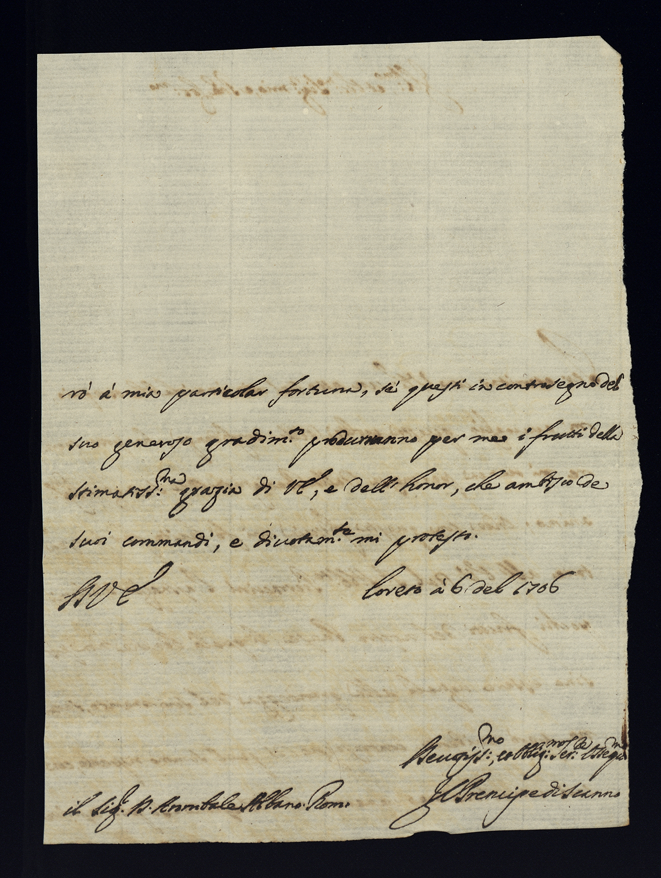 rò à mia particolar fortuna, sè questi in contrasegno del
suo generoso gradim.to produrranno per me i frutti della
stimatiss.ma grazia di VS, e dell'honor, che ambisco de
suoi commandi, e divotam.te mi protesto.
Loreto à 6 del 1706
obblig.mo Ser.
il Sig. Annibale Albano. Roma
Il Prencipe di Scanno